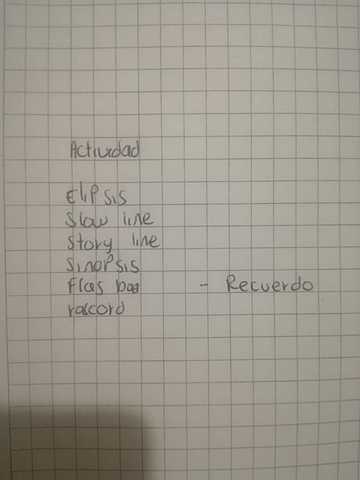 Actividad
Elipsis
Slow line
Story line
Sinopsis
Flas bas - Recuerdo
raccord